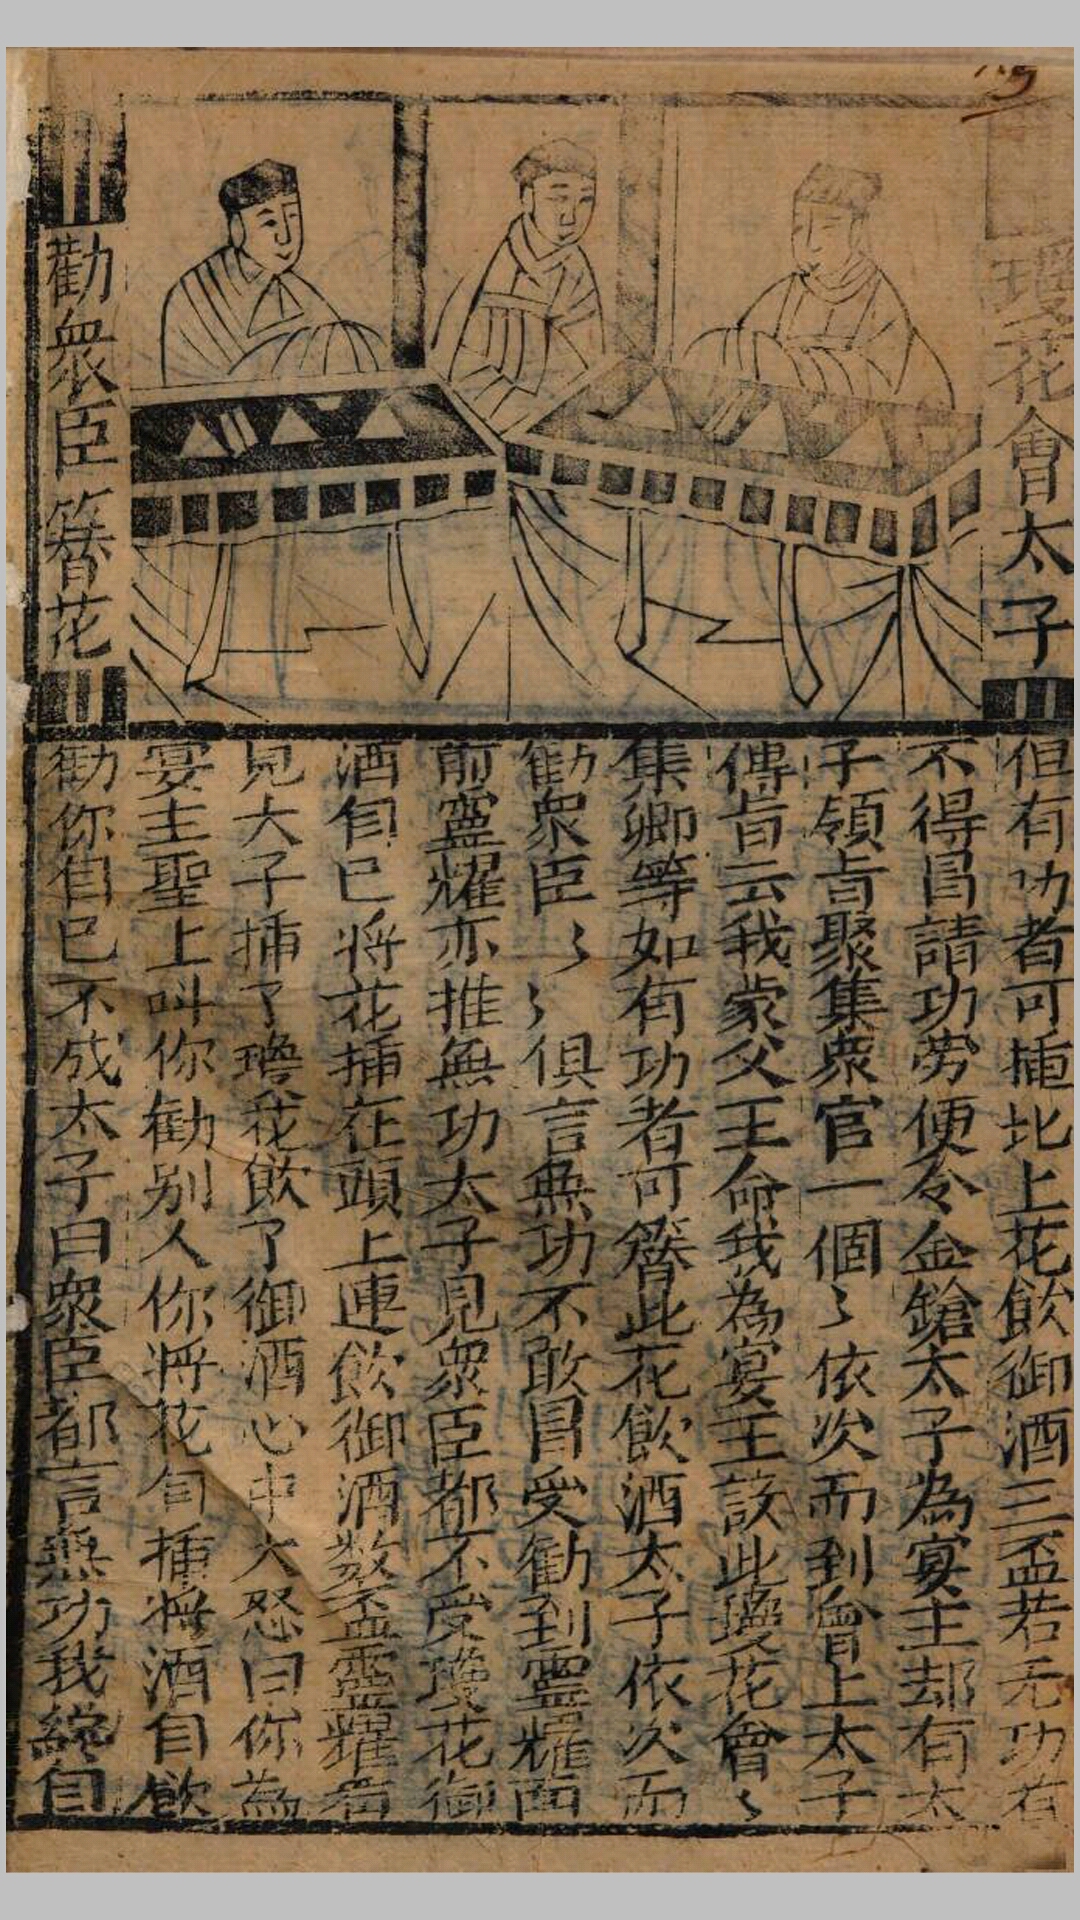 瓊花會太子
勸衆臣簪花
但有功者可揷此上花飲御酒三盃若无功者
不得冒請功劳便令金鎗太子為宴主却有太
子領㫖聚集衆官一個〻依次而到會上太子
傳㫖云我蒙父王命我為宴主該此瓊花會〻
集卿等如有功者可簪此花飲酒太子依次而
勸衆臣〻〻俱言無功不敢冒受勸到靈耀面
前靈耀亦推無功太子見衆臣都不受瓊花御
酒自已将花揷在頭上連飲御酒數盃靈耀看
見太子揷了瓊花飲了御酒心中大怒曰你為
宴主聖上叫你勸别人你将花自揷将酒自飲
勸你自已不成太子曰衆臣都言無功我纔自